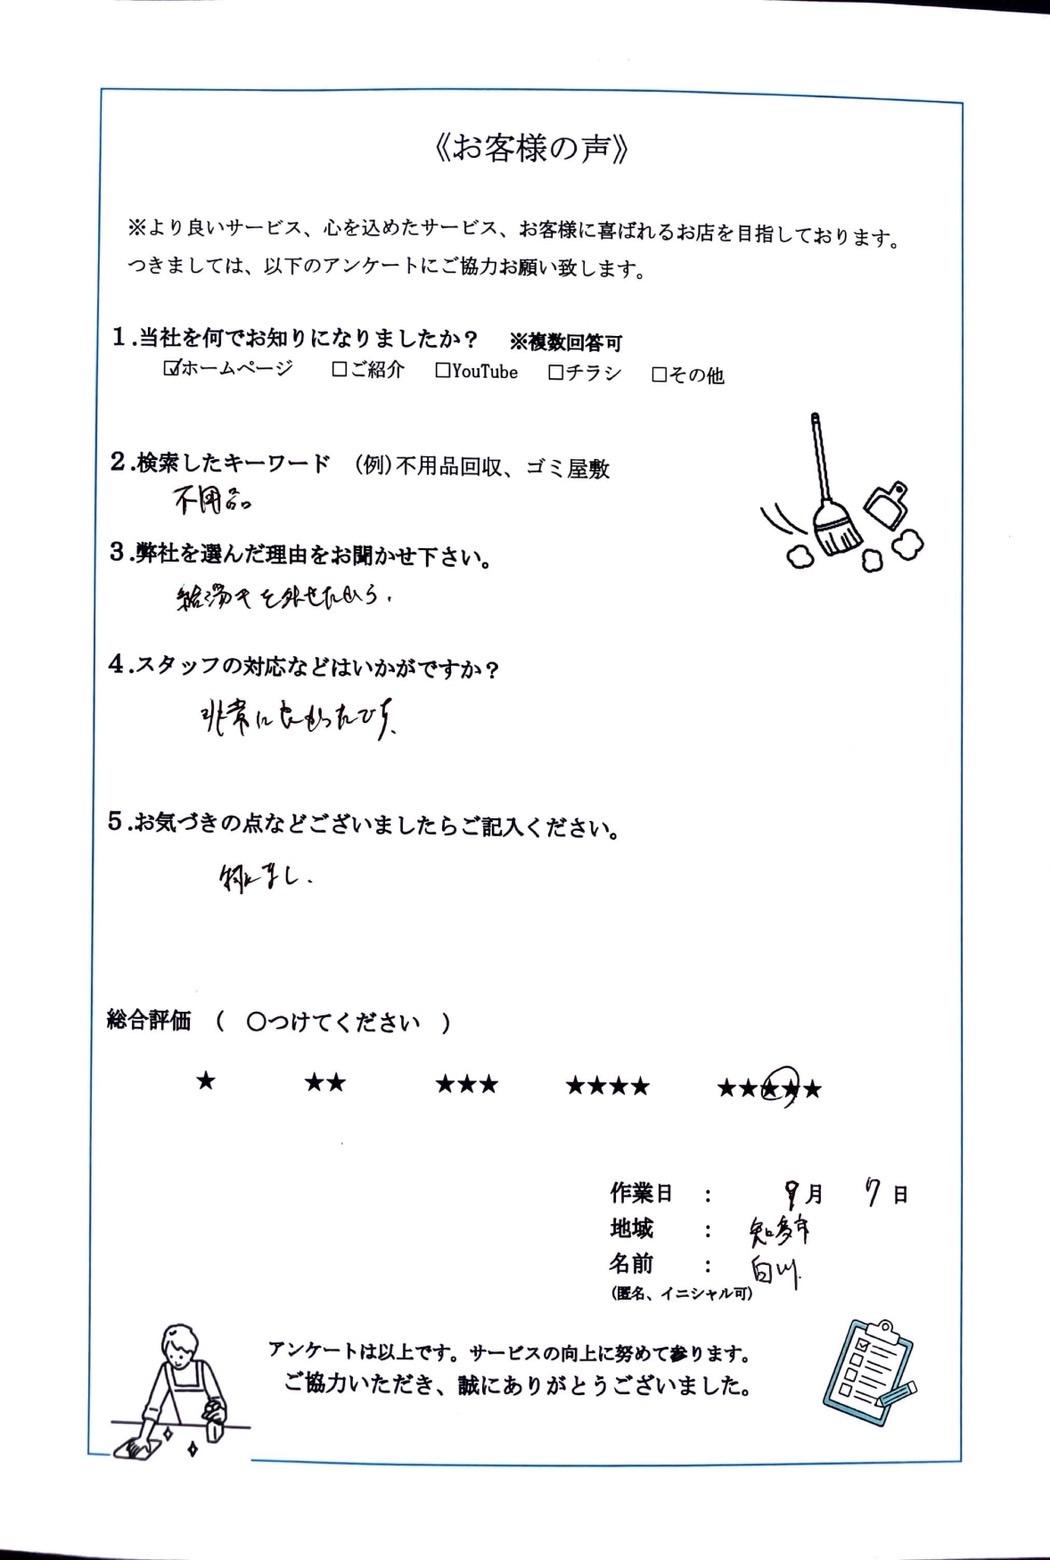 《お客様の声》
※より良いサービス、心を込めたサービス、お客様に喜ばれるお店を目指しております。
つきましては、以下のアンケートにご協力お願い致します。
1.当社を何でお知りになりましたか？ ※複数回答可
☑ホームページ □ご紹介 □YouTube □チラシ □その他
2.検索したキーワード （例）不用品回収、ゴミ屋敷
不用品
3.弊社を選んだ理由をお聞かせ下さい。
を外せたから.
4.スタッフの対応などはいかがですか？
非常に良かったです.
5.お気づきの点などございましたらご記入ください。
特になし.
総合評価 ( 〇つけてください )
★ ★★ ★★★ ★★★★ ★★★★★
作業日 ： 9月 7日
地域 ： 知多市
名前 ： 白川
(匿名、イニシャル可)
アンケートは以上です。サービスの向上に努めて参ります。
ご協力いただき、誠にありがとうございました。